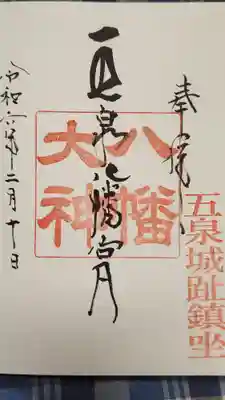 奉拝
五泉城趾鎮坐
八幡大神
五泉八幡宮
令和六年十二月十日